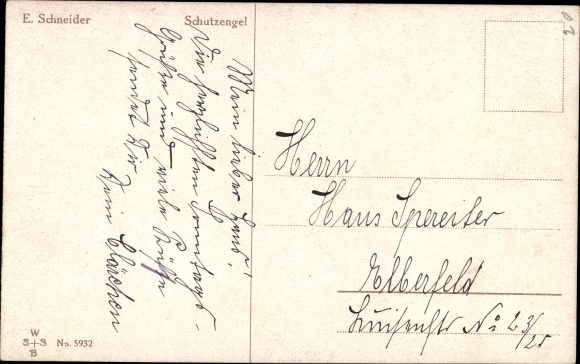 E. Schneider
Schutzengel
Mein lieber Hans!
Die herzlichsten Sonntags-
Grüße und viele Küsse
sendet Dir
Dein Clärchen
Herrn
Hans Spereiter
Elberfeld
Luisenstr No
W
S+S
B
No. 5932